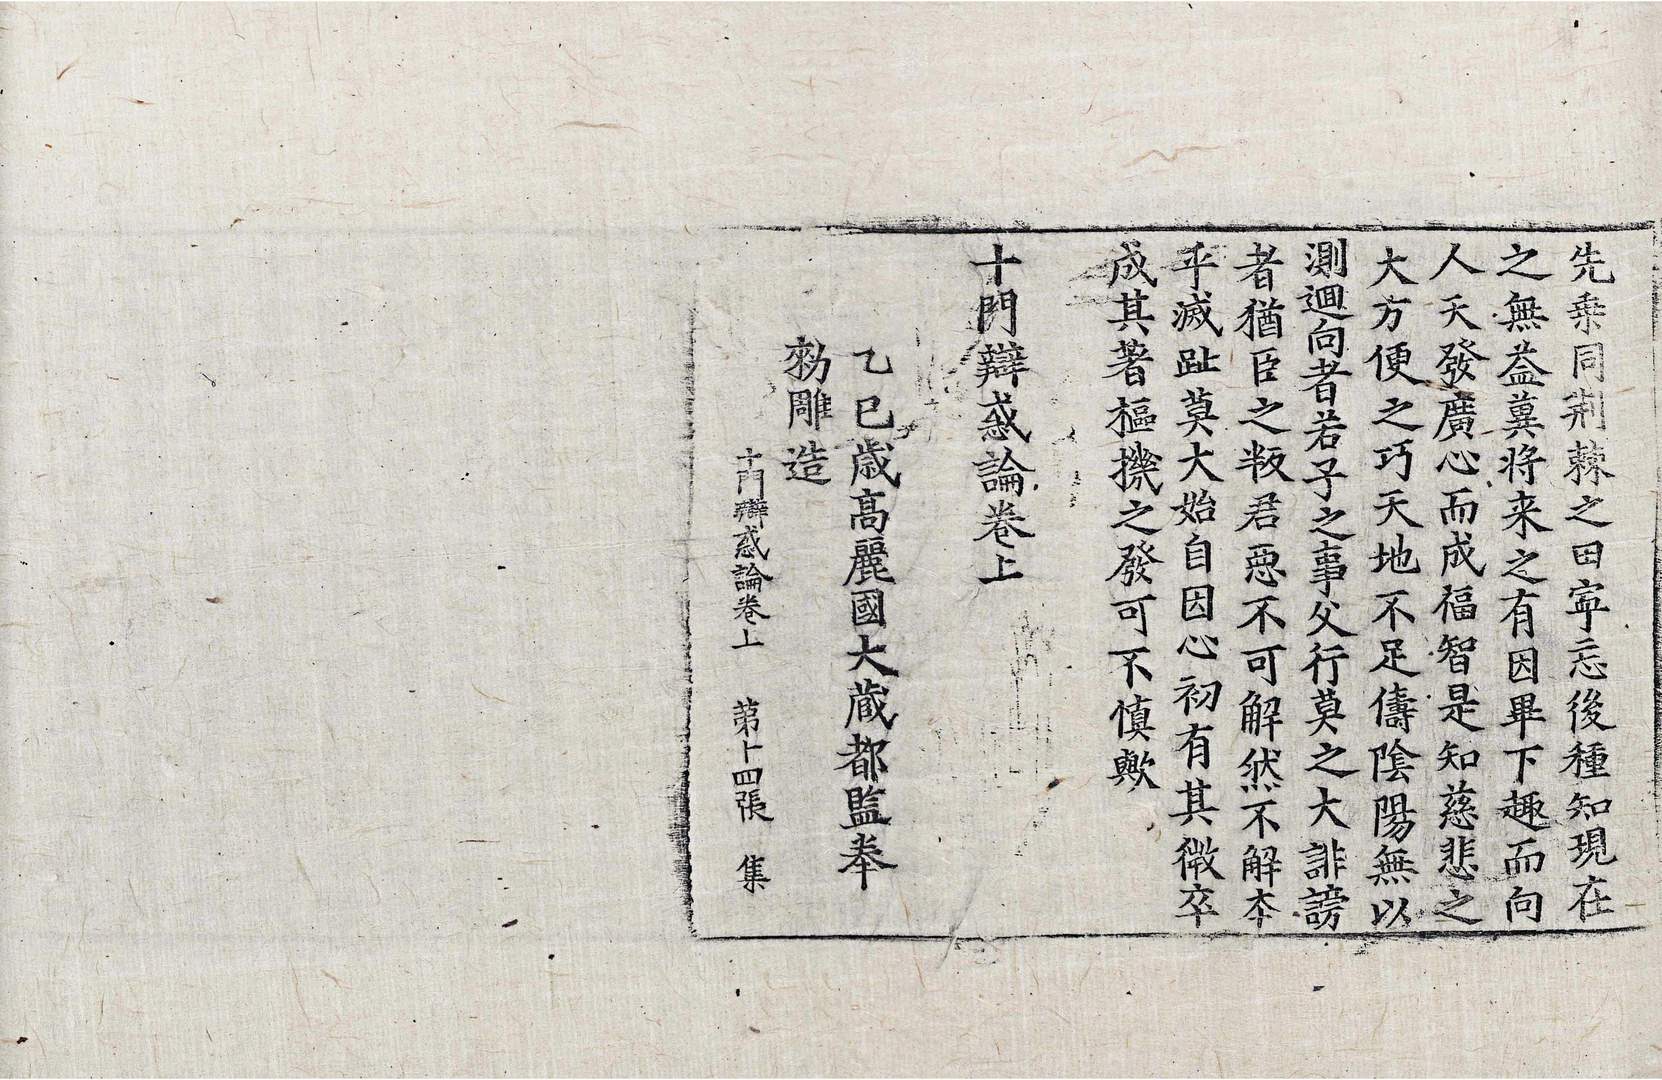 先乗同荆棘之田寜忘後種知現在
之無益冀将来之有因畢下趣而向
人天發廣心而成福智是知慈悲之
大方便之巧天地不足儔陰陽無以
測迴向者若子之事父行莫之大誹謗
者猶臣之叛君惡不可解然不解夲
乎滅趾莫大始自因心初有其微卒
成其著樞撓之發可不慎歟
十門辯惑論卷上
乙巳歳高麗國大藏都監奉
勑雕造
十門辯惑論卷上 第十四張 集